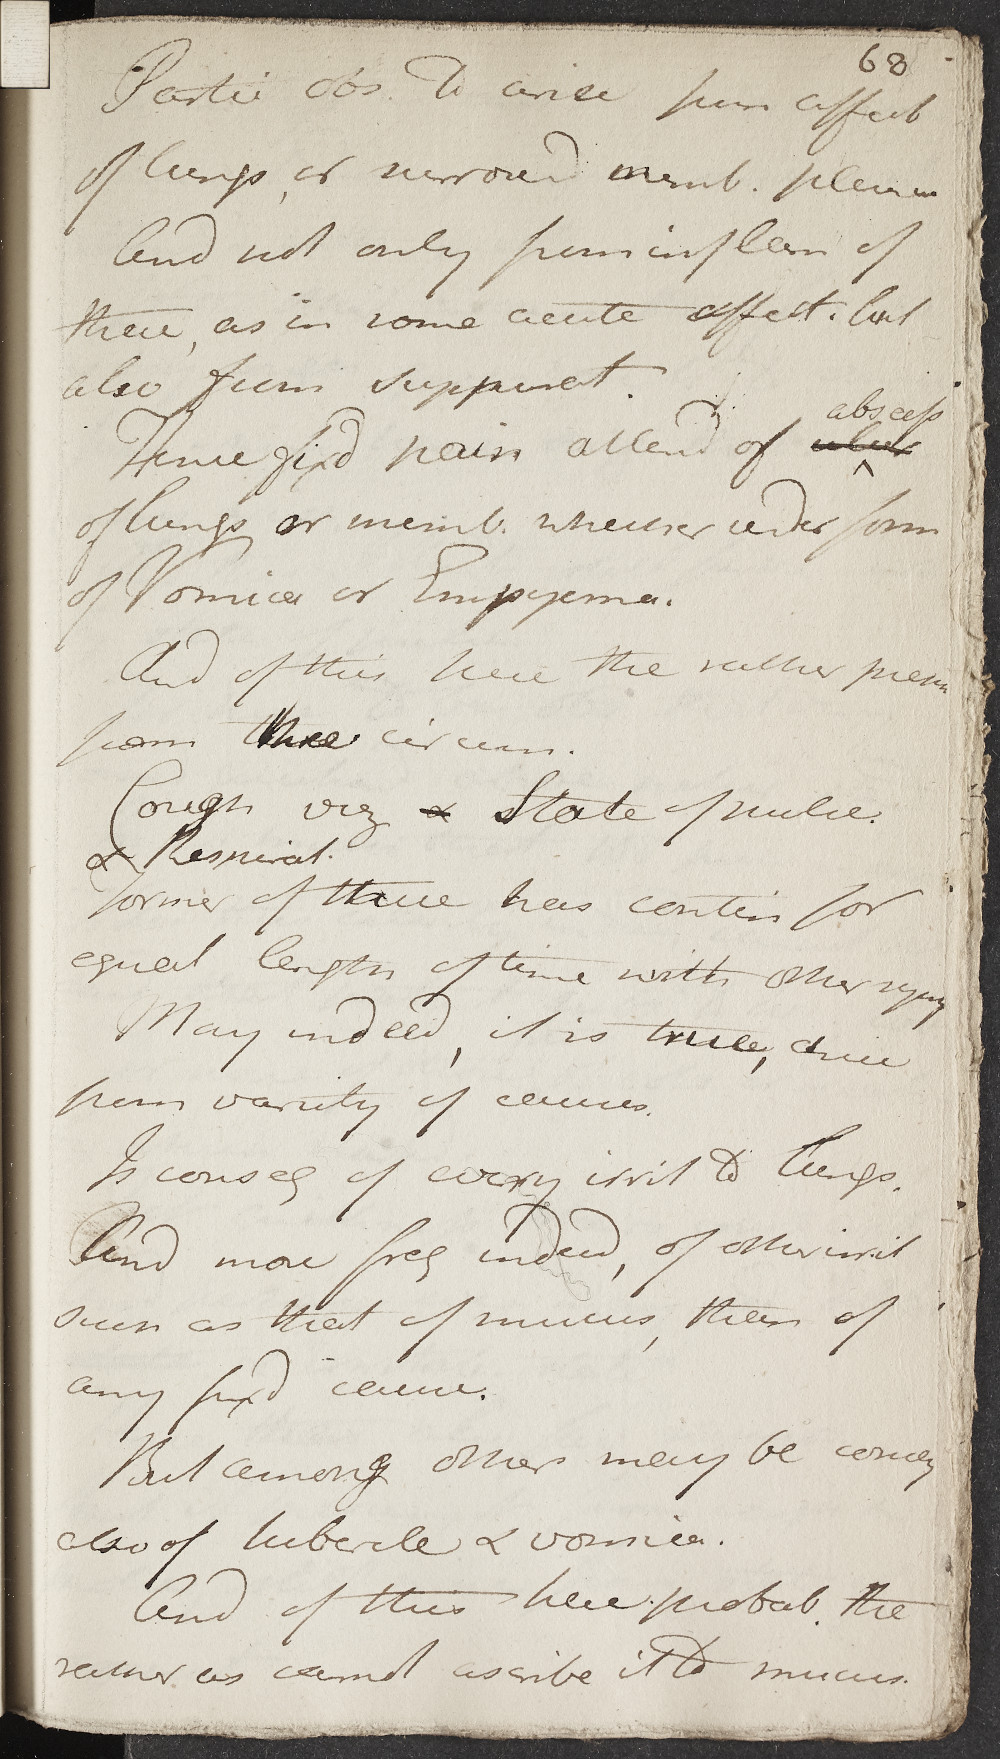 68
Partic obs. to arise from affect
of lungs, or surround memb. pleura
And not only from inflam of
these, as in some acute affect. but
also from suppurat.
Hence fix'd pain attend of ulcer abscess
of lungs or memb. whether under form
of Vomica or Empyema.
And of this here the rather presum
from three circum.
Cough viz & State of pulse.
& Respirat.
former of these has contin for
equal length of time with other symp
May indeed, it is true, arise
from variety of causes.
Is conseq of every irrit to lungs.
And more freq indeed, of other irrit
such as that of mucus, than of
any fix'd cause.
But among others may be conseq
also of tubercle & vomica.
And of this here probab. the
rather as cannot ascribe it to mucus.